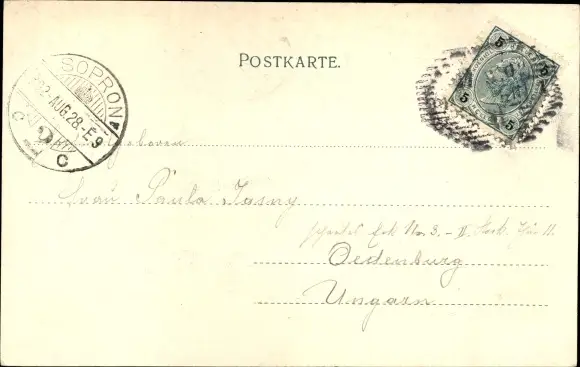 POSTKARTE.
5 5
5 5
SOPRON
902 AUG. 28-E 9
C C
geboren
Frau Paula Jasny
Eck No 3. - II. Stock. Tür 11.
Oedenburg
Ungarn